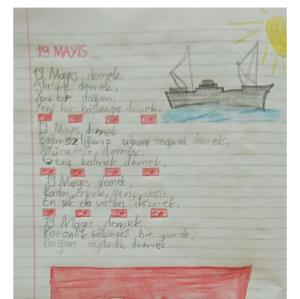 19 MAYIS
19 Mayıs, demek,
Atatürk demek,
Yeni bir doğum,
Yeni bir başlangıç demek.
19 Mayıs demek
uğruna demek,
Mücadele, demek,
Genç kalmak demek.
19 Mayıs demek,
Kadın, Erkek, genç, yaşlı,
En çok da vatan demek.
19 Mayıs demek,
Karanlık bir yurda,
Doğan aydınlık demek.